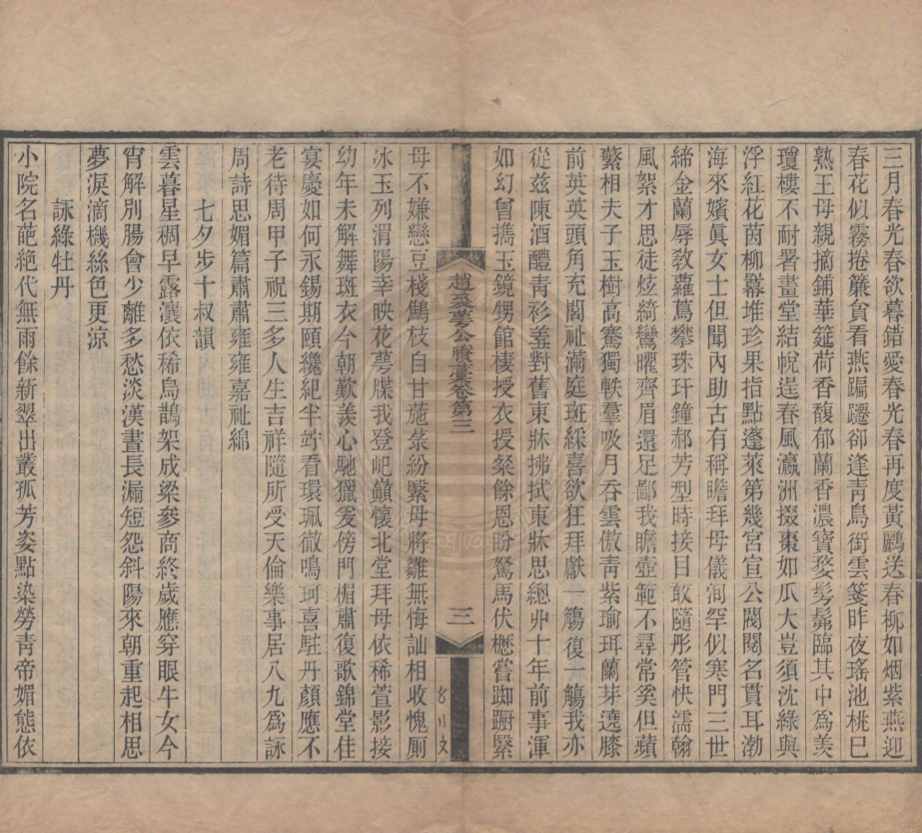 三月春光春欲暮錯愛春光春再度黃鸝送春柳如烟紫燕迎
春花似霧捲簾貪看燕蹁躚卻逢靑鳥銜雲箋昨夜瑤池桃巳
熟王母親摘鋪華筵荷香馥郁蘭香濃寶婺髣髴臨其中為羨
瓊樓不耐署畫堂結帨逞春風瀛洲掇棗如瓜大豈須沈綠與
浮紅花茵柳冪堆珍果指點蓬萊第幾宮宣公閥閱名貫耳渤
海來嬪眞女士但聞內助古有稱瞻拜母儀洵罕似寒門三世
締金蘭辱敎蘿蔦攀珠玕鐘郝芳型時接目敢隨彤管快濡翰
風絮才思徒炫綺鸞曜齊眉還足鄙我瞻壼範不尋常奚但蘋
蘩相夫子玉樹高騫獨軼羣吸月吞雲傲靑紫瑜珥蘭芽遶膝
前英英頭角充閭祉滿庭斑綵喜欲狂拜獻一觴復一觴我亦
從兹陳酒醴靑衫羞對舊東牀拂拭東牀思總丱十年前事渾
如幻曾攜玉鏡甥館棲授衣授粲餘恩盼駑馬伏櫪嘗踟躕繄
趙裘萼公賸藁卷第三
三
母不嫌戀豆棧鷦枝自甘蓏蔂紛繄母將雛無悔訕相收愧厠
冰玉列渭陽幸映花萼牒我登屺巔懷北堂拜母依稀萱影接
幼年未解舞斑衣今朝歎羨心馳獵爰傍門楣肅復歌錦堂佳
宴慶如何永錫期頤纔紀半竚看環珮徹鳴珂喜駐丹顏應不
老待周甲子祝三多人生吉祥隨所受天倫樂事居八九為詠
周詩思媚篇肅肅雍雍嘉祉綿
七夕步十叔韻
雲暮星稠早露瀼依稀烏鵲架成梁參商終歲應穿眼牛女今
宵解別腸會少離多愁淡漢晝長漏短怨斜陽來朝重起相思
夢淚滴機絲色更涼
詠綠牡丹
小院名葩絶代無雨餘新翠出叢孤芳姿點染勞靑帝媚態依